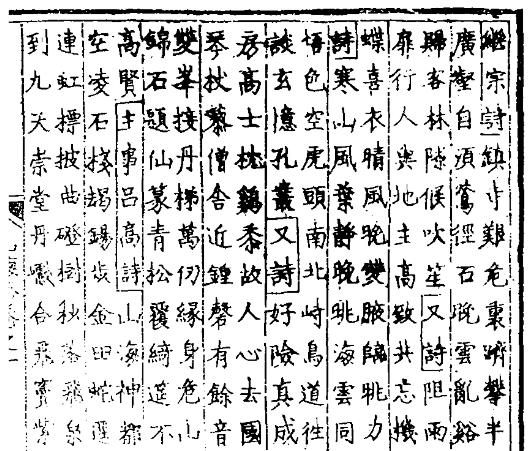 繼宗詩鎮寺艱危裏躋攀半
廣壑自須鶯徑石晚雲亂谿
歸客林隙候吹笙又詩阻雨
扉行人與地主高致共忘機
蝶喜衣晴風晚雙腋臨眺力
詩寒山風葉靜晚眺海雲同
悟色空虎頭南北峙鳥道往
談玄憶孔叢又詩好險真成
房高士枕鷄黍故人心去國
琴杖藜僧舍近鐘磬有餘音
雙峯接丹梯萬仞緣身危山
錦石題仙篆青松覆綺筵不
高賢主事呂高詩山海神都
空凌石棧錫歩金田蛇
連虹摽披曲磴樹秋落飛泉
到九天崇堂丹巘合飛紫